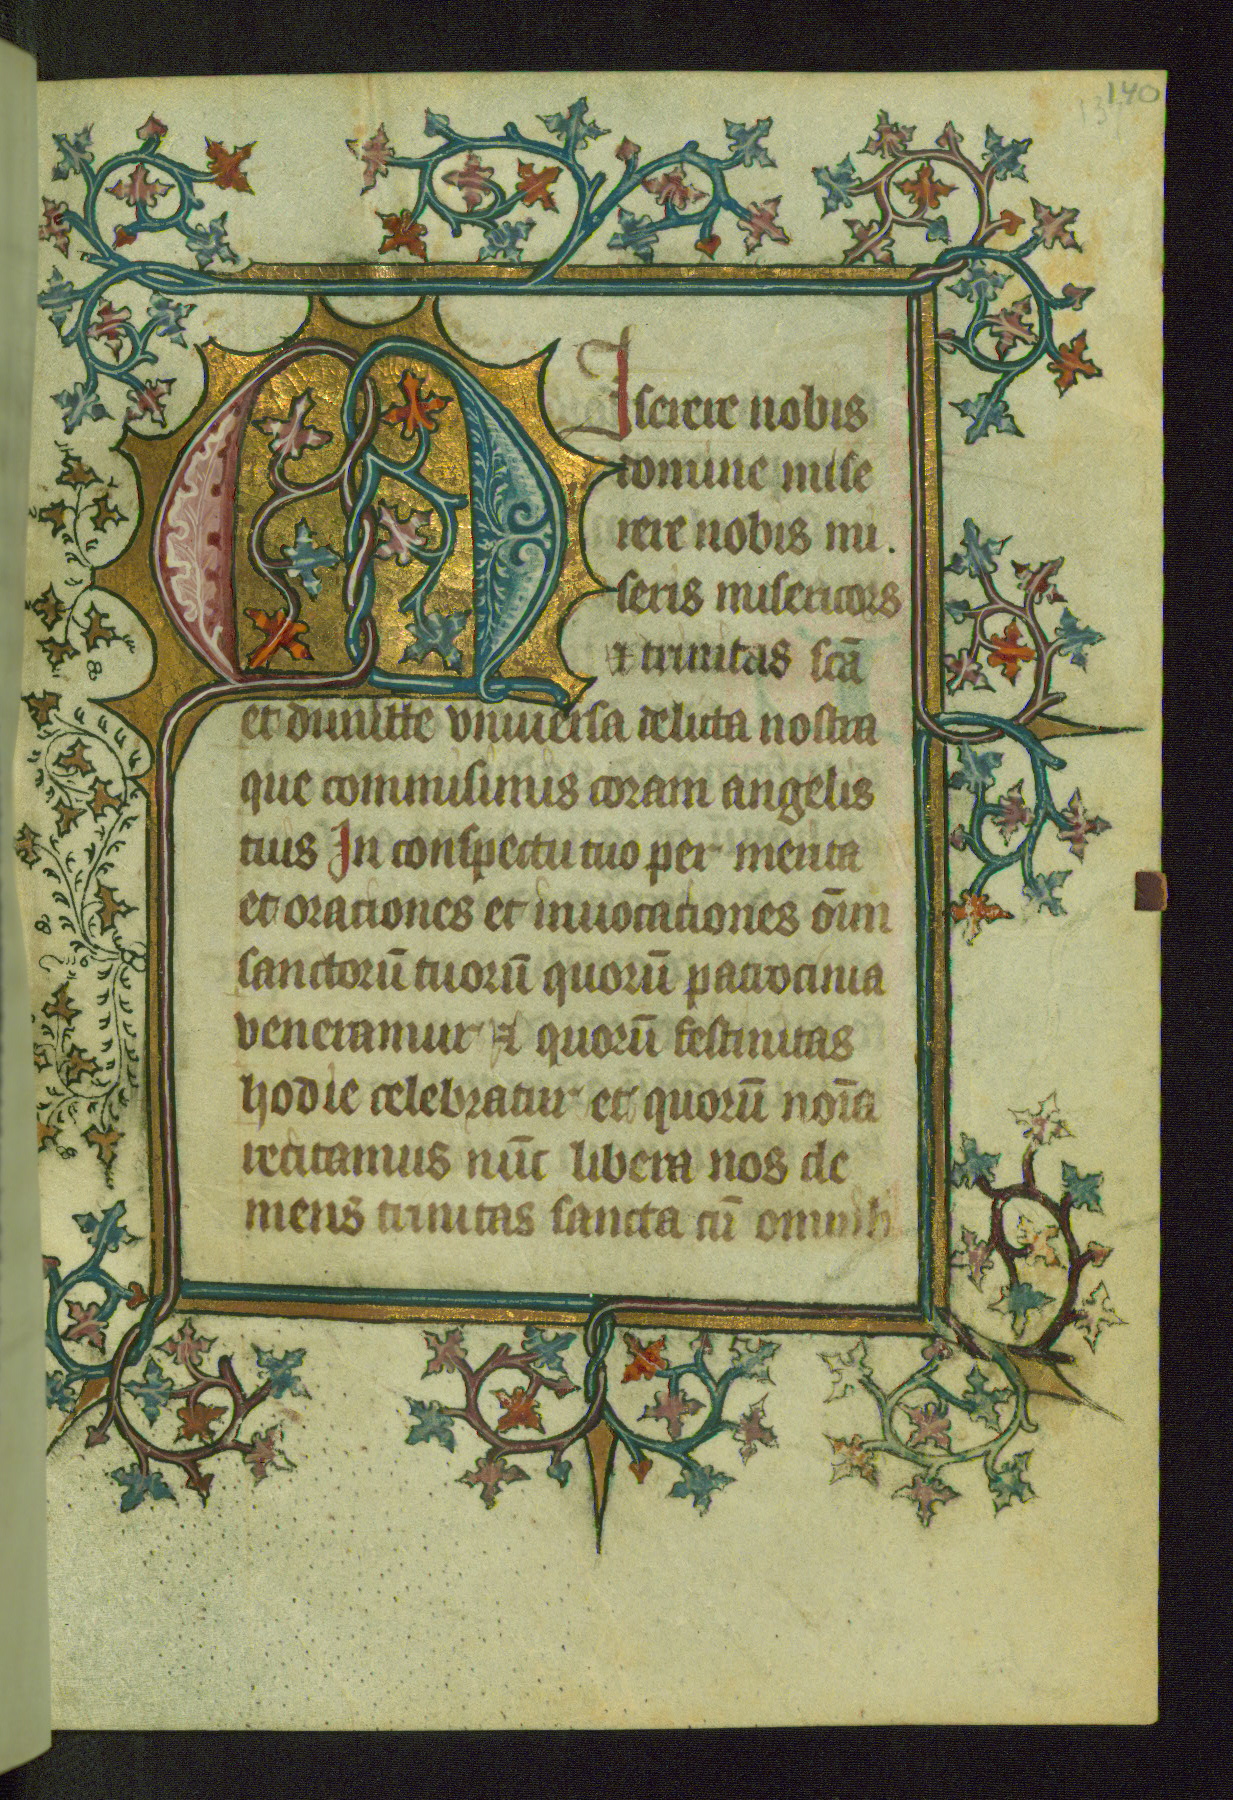 140
137
MIserere nobis
domine mise
rere nobis mi.
seris misericors
et trinitas scā
et dimitte vniuersa delicta nostra
que commisimus coram angelis
tuis In conspectu tuo per merita
et orationes et inuocationes om̄
sanctorū tuorū quorū patrocinia
veneramur et quorū festiuitas
hodie celebratur et quorū noīa
recitamus nūc libera nos de
mens trinitas sancta cū omnib